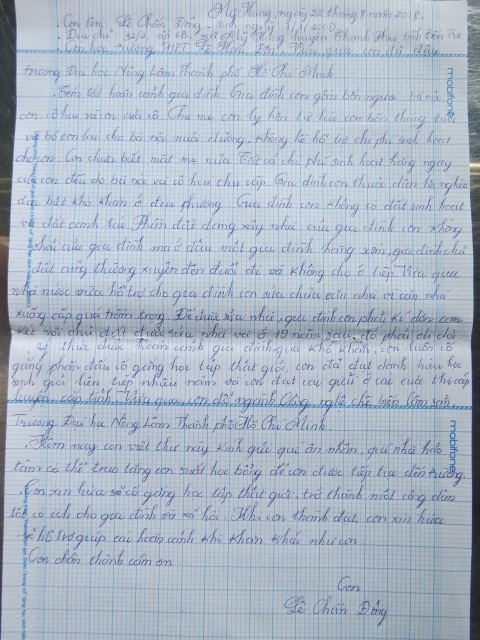 Mỹ Hưng, ngày 22 tháng 8 năm 2018.
. Con tên: Lê Chấn Đông. Sinh ngày: 1/1/2000
. Địa chỉ 32/2, ấp xã Mỹ Hưng, huyện Thạnh Phú, tỉnh Bến Tre
. Con học trường THPT Lê Hoài Đôn. Vừa qua con đã đậu
trường Đại học Nông Lâm Thành phố Hồ Chí Minh.
. Tóm tắt hoàn cảnh gia đình. Gia đình con gồm bốn người: bà nội,
con, cô hai và con của cô. Cha mẹ con ly hôn từ lúc con bốn tháng tuổi
và bỏ con lại cho bà nội nuôi dưỡng, không hề hỗ trợ chi phí sinh hoạt
cho con. Con chưa biết mặt mẹ nữa. Tất cả chi phí sinh hoạt hằng ngày
của con đều do bà nội và cô hai chu cấp. Gia đình con thuộc diện hộ nghèo
đặc biệt khó khăn ở địa phương. Gia đình con không có đất sinh hoạt
và đất canh tác. Phần đất đang xây nhà của gia đình con không
phải của gia đình mà ở đậu một gia đình hàng xóm, gia đình chủ
đất cũng thường xuyên đến đuổi đi và không cho ở tiếp. Vừa qua
nhà nước vừa hỗ trợ cho gia đình con sửa chữa căn nhà vì căn nhà
xuống cấp quá trầm trọng. Để được sửa nhà, gia đình con phải kí đơn cam
kết với chủ đất được sửa nhà và ở 19 năm, sau đó phải đi chỗ
Ý thức được hoàn cảnh gia đình quá khó khăn, con luôn cố
gắng phấn đấu cố gắng học tập thật giỏi, con đã đạt danh hiệu học
sinh giỏi liên tiếp nhiều năm và con đạt các giải ở các cuộc thi cấp
huyện, cấp tỉnh. Vừa qua, con đỗ ngành Công nghệ chế biến lâm sản,
Trường Đại học Nông Lâm Thành phố Hồ Chí Minh.
. Hôm nay con viết thư này kính gửi quý ân nhân, quý nhà hảo
tâm có thể trao tặng con suất học bổng để con được tiếp tục đến trường.
. Con xin hứa sẽ cố gắng học tập thật giỏi, trở thành một công dân
tốt có ích cho gia đình và xã hội. Khi con thành đạt, con xin hứa
sẽ hỗ trợ giúp các hoàn cảnh khó khăn khác như con.
Con chân thành cám ơn
Con
Lê Chấn Đông
mobifone
mobifone